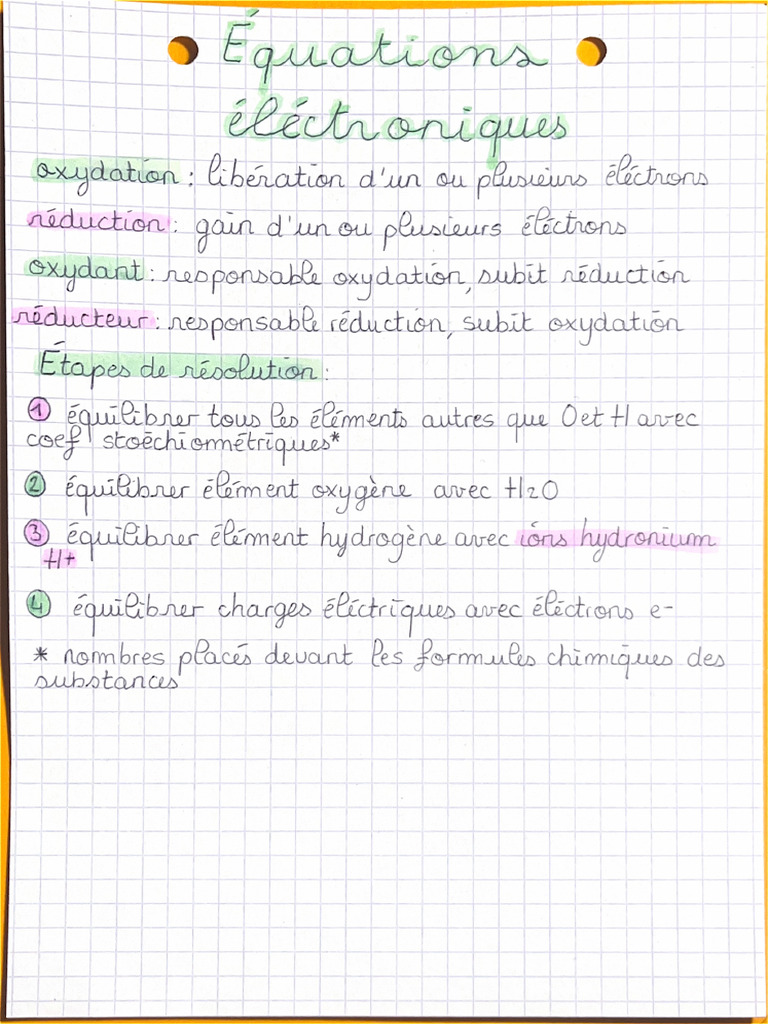 Équations
éléctroniques
oxydation : libération d'un ou plusieurs éléctrons
réduction : gain d'un ou plusieurs éléctrons
oxydant : responsable oxydation, subit réduction
réducteur : responsable réduction, subit oxydation
Étapes de résolution :
1 équilibrer tous les éléments autres que O et H avec
coef stoëchiométriques*
2 équilibrer élément oxygène avec H2O
3 équilibrer élément hydrogène avec ions hydronium
H+
4 équilibrer charges éléctriques avec éléctrons e-
* nombres placés devant les formules chimiques des
substances